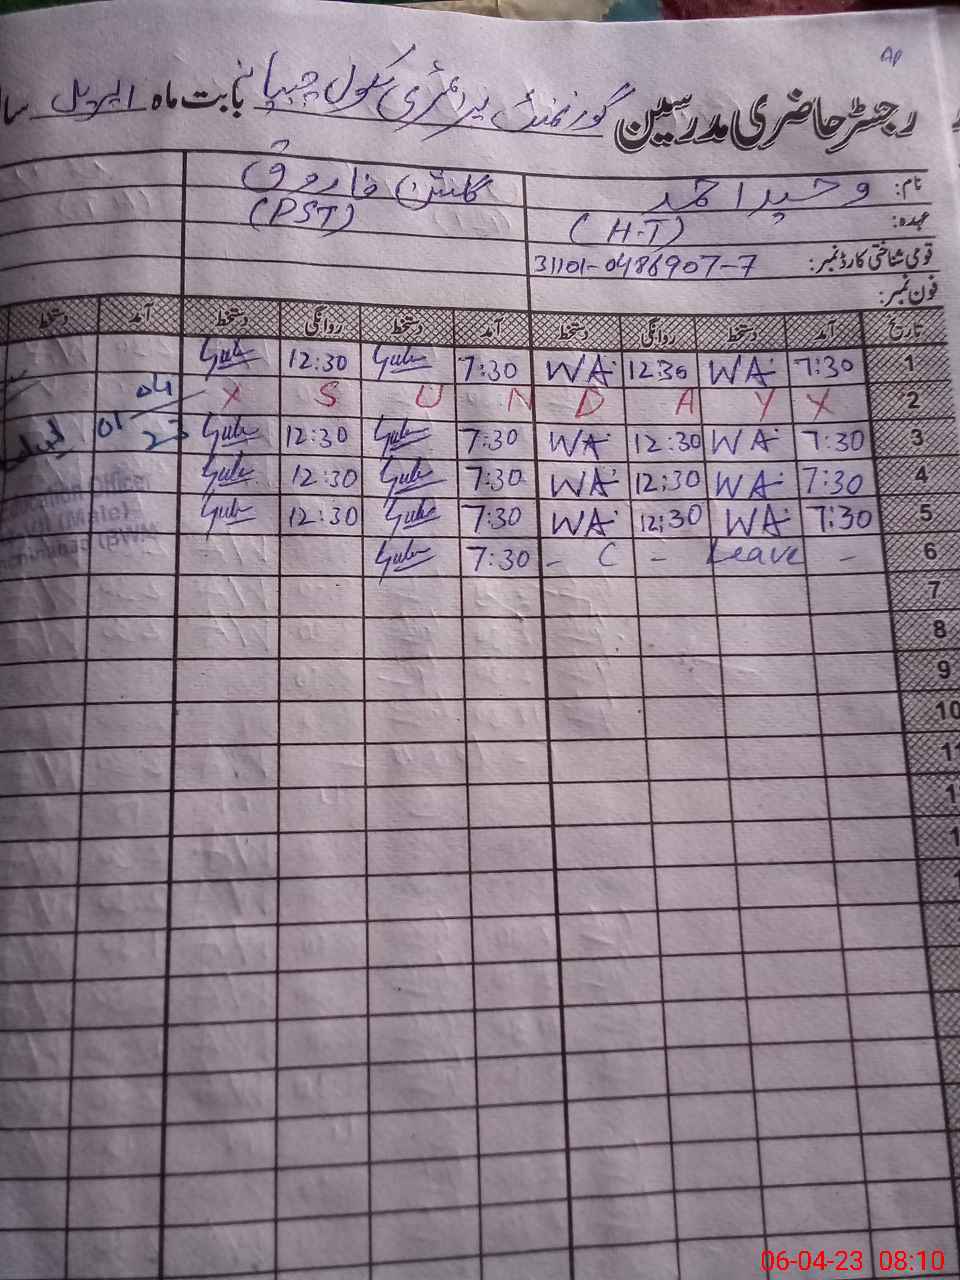 Ap
رجسٹر حاضری مدرسین گورنمنٹ پرائمری سکول بابت ماہ اپریل
نام: وحید احمد گلشن فاروق
عہدہ: (H.T) (PST)
قومی شناختی کارڈ نمبر: 31101-0486907-7
فون نمبر:
تاریخ آمد دستخط روانگی دستخط آمد دستخط روانگی دستخط آمد دستخط
7:30 WA 12:30 WA 7:30 Gul 12:30 Gul
2 X S U N D A Y X
3 7:30 WA 12:30 WA 7:30 Gul 12:30 Gul 01/04 23
4 7:30 WA 12:30 WA 7:30 Gul 12:30 Gul
5 7:30 WA 12:30 WA 7:30 Gul 12:30 Gul
6 – C – Leave – 7:30 Gul
7
8
9
10
11
06-04-23 08:10